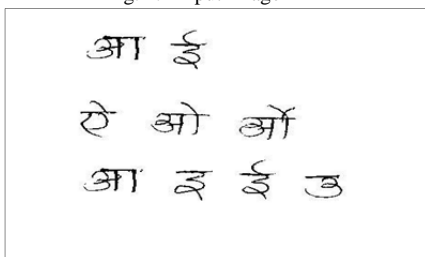 आ ई
ऐ ओ ओं
आ इ ई उ